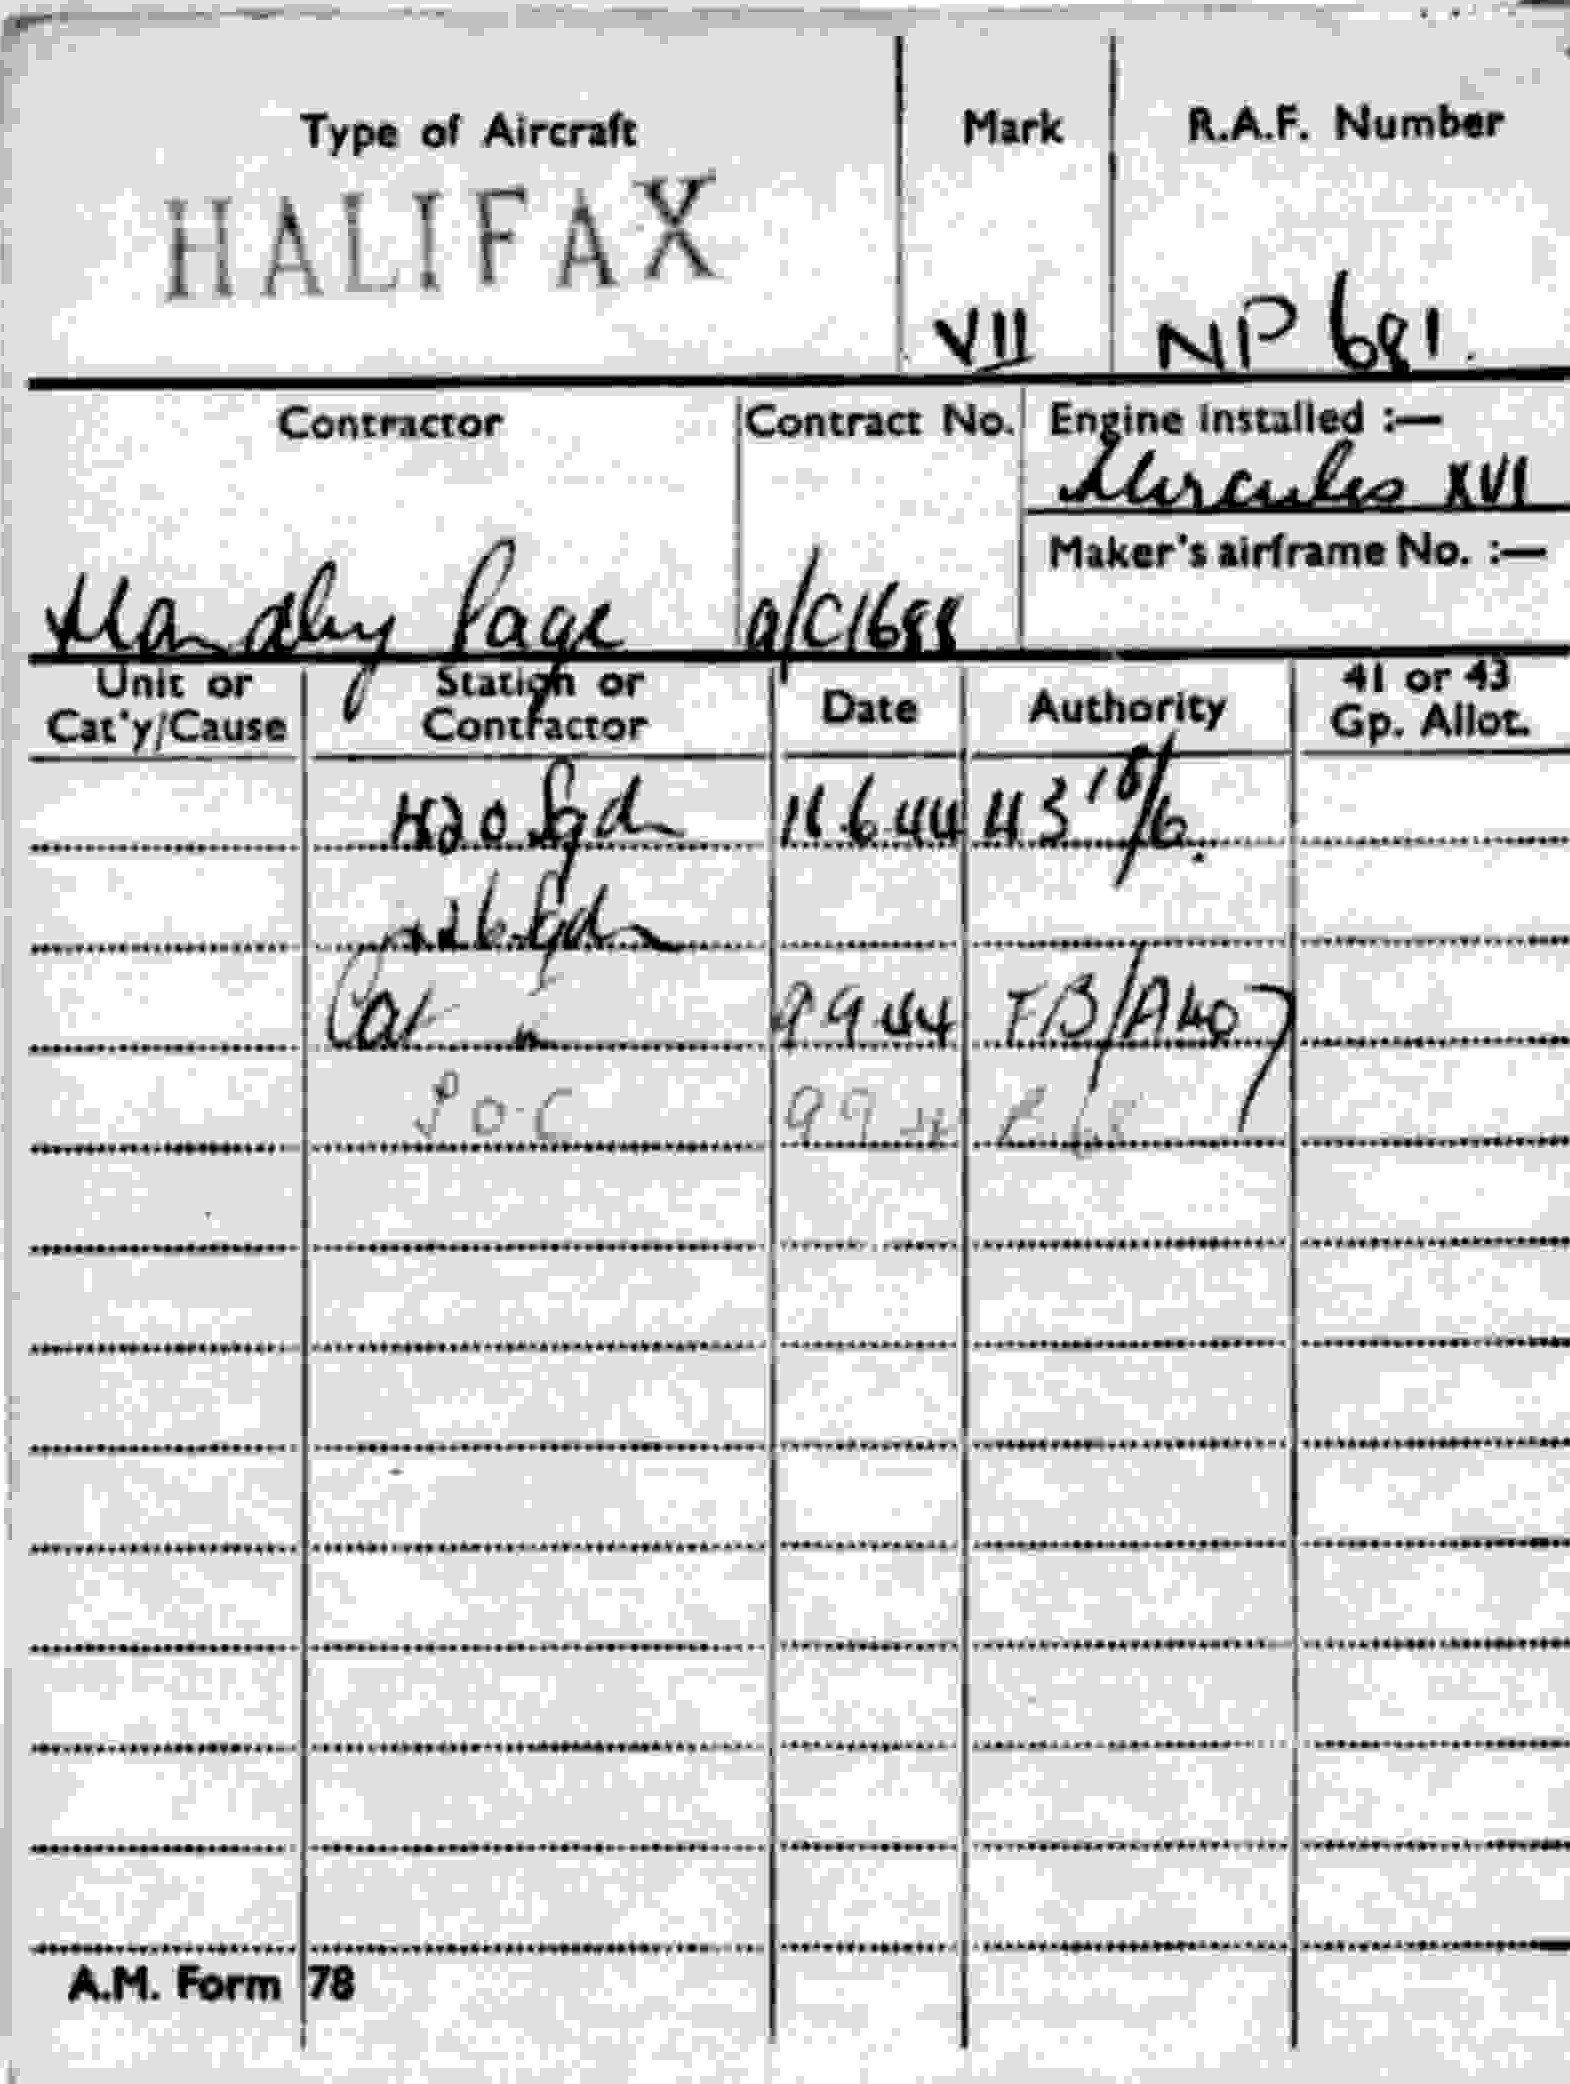 Type of Aircraft Mark R.A.F. Number
HALIFAX
VII NP 681.
Contractor Contract No. Engine installed :—
Hercules XVI
Maker's airframe No. :—
Handley Page a/C1688
Unit or Station or Date Authority 41 or 43
Cat'y/Cause Contractor Gp. Allot.
420 Sqdn 11.6.44 43 18/6.
426 Sqdn
Cat 9 9 44 FB/A407
S.O.C 9 9 44
A.M. Form 78